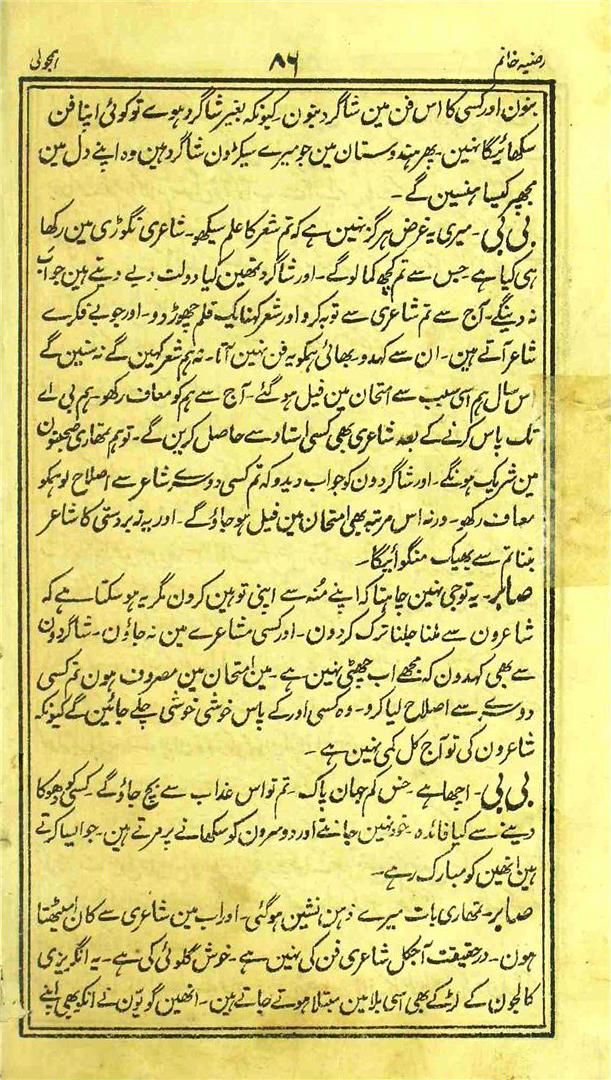 رضیہ خانم ۸۶ ہمجولی
بنون اور کسی کا اس فن مین شاگرد بنون۔ کیونکہ بغیر شاگرد ہوے تو کوئی اپنا فن
سکھائیگا نہین۔ پھر ہندوستان مین جو میرے سیکڑون شاگرد ہین وہ اپنے دل مین
مجھپر کیسا ہنسین گے۔
بی بی۔ میری یہ غرض ہرگز نہین ہے کہ تم شعر کا علم سیکھو۔ شاعری نگوڑی مین رکھا
ہی کیا ہے جس سے تم کچھ کما لوگے۔ اور شاگرد تمھین کیا دولت دیے دیتے ہین جو اب
نہ دینگے۔ آج سے تم شاعری سے توبہ کرو اور شعر کہنا یک قلم چھوڑ دو۔ اور جو بے فکرے
شاعر آتے ہین۔ ان سے کہدو۔ بھائی ہمکو یہ فن نہین آتا۔ نہ ہم شعر کہین گے نہ سنین گے
اس سال ہم اسی سبب سے امتحان مین فیل ہو گئے۔ آج سے ہم کو معاف رکھو۔ ہم بی اے
تک پاس کرنے کے بعد شاعری بھی کسی استاد سے حاصل کرین گے۔ تو ہم تمھاری صحبتون
مین شریک ہونگے۔ اور شاگردون کو جواب دیدو کہ تم کسی دوسرے شاعر سے اصلاح لو ہمکو
معاف رکھو۔ ورنہ اس مرتبہ بھی امتحان مین فیل ہو جاؤ گے۔ اور یہ زبردستی کا شاعر
بننا تم سے بھیک منگوائیگا۔
صابر۔ یہ تو جی نہین چاہتا کہ اپنے منہ سے اپنی توہین کرون مگر یہ ہو سکتا ہے کہ
شاعرون سے ملنا جلنا ترک کردون۔ اور کسی مشاعرے مین نہ جاؤن۔ شاگردون
سے بھی کہدون کہ مجھے اب چھٹی نہین ہے۔ مین امتحان مین مصروف ہون تم کسی
دوسرے سے اصلاح لیا کرو۔ وہ کسی اور کے پاس خوشی خوشی چلے جائین گے کیونکہ
شاعرون کی تو آج کل کمی نہین ہے۔
بی بی۔ اچھا ہے۔ خس کم جہان پاک۔ تم تو اس عذاب سے بچ جاؤ گے۔ کسیکو دھوکا
دینے سے کیا فائدہ۔ خود نہین جانتے اور دوسرون کو سکھانے پر مرتے ہین۔ جو ایسا کرتے
ہین انھین کو مبارک رہے۔
صابر۔ تمھاری بات میرے ذہن نشین ہو گئی۔ اور اب مین شاعری سے کان امیٹھتا
ہون۔ در حقیقت آجکل شاعری فن کی نہین ہے۔ خوش گلوئی کی ہے۔ یہ انگریزی
کالجون کے لڑکے بھی اسی بلا مین مبتلا ہوتے جاتے ہین۔ انھین گویّون نے انکو بھی اپنے